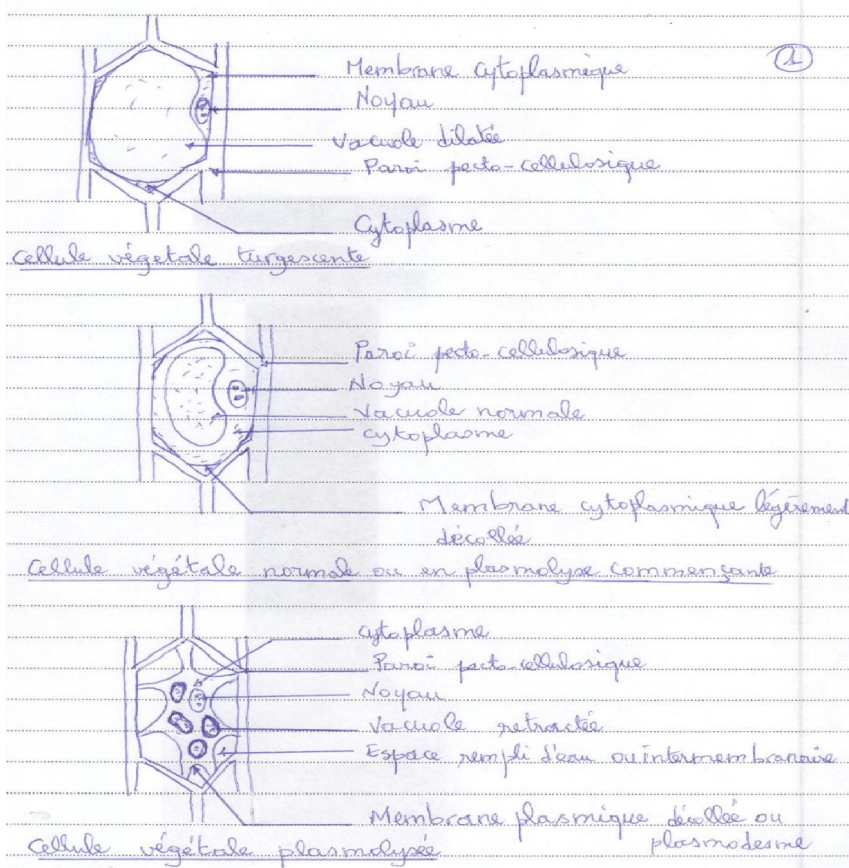 1
Membrane cytoplasmique
Noyau
Vacuole dilatée
Paroi pecto-cellulosique
Cytoplasme
Cellule végetale turgescente
Paroi pecto-cellulosique
Noyau
Vacuole normale
cytoplasme
Membrane cytoplasmique légèrement
décollée
Cellule végétale normale ou en plasmolyse commençante
cytoplasme
Paroi pecto-cellulosique
Noyau
Vacuole retractée
Espace rempli d'eau ou intermembranaire
Membrane plasmique décollée ou
plasmodesme
Cellule végétale plasmolysée